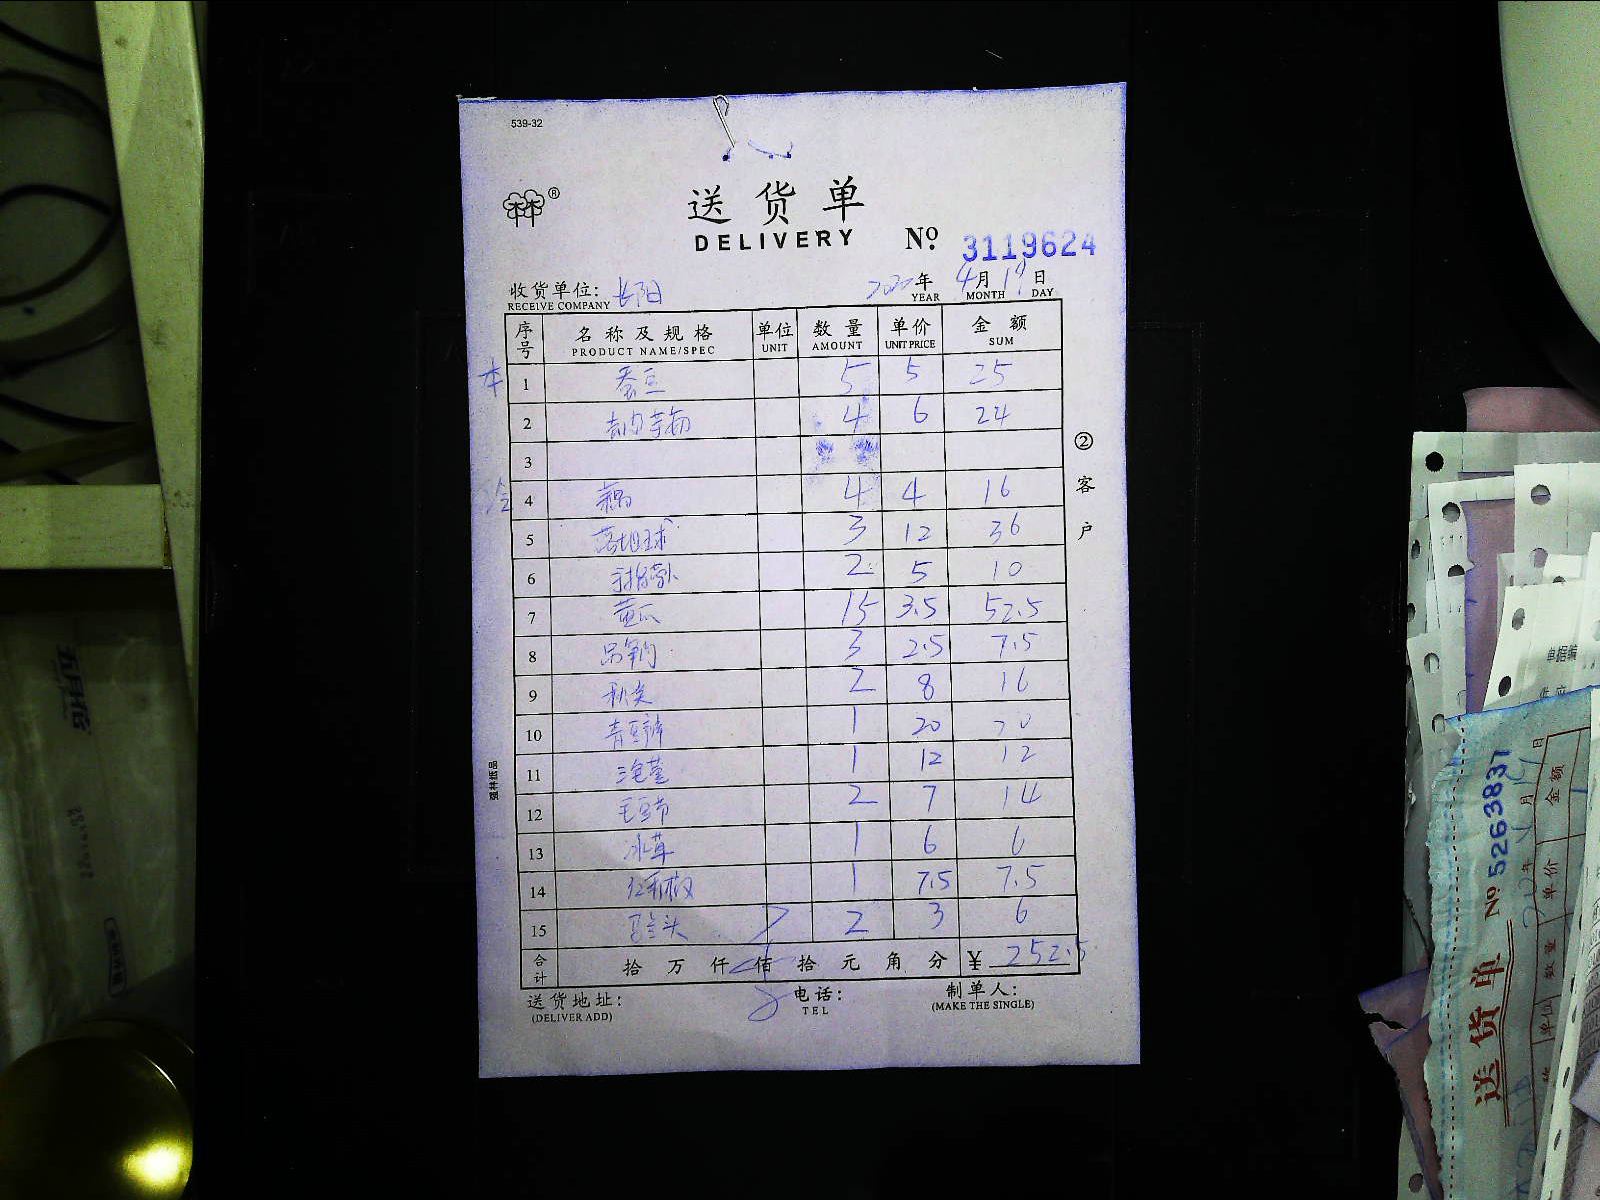 539-32
®
送货单
DELIVERY № 3119624
收货单位: 长阳 2020年 4月 19日
RECEIVE COMPANY YEAR MONTH DAY
序号 名称及规格 单位 数量 单价 金额
PRODUCT NAME/SPEC UNIT AMOUNT UNIT PRICE SUM
本 1 蚕豆 5 5 25
2 4 6 24
3
冷 4 藕 4 4 16
5 3 12 36
6 2 5 10
7 黄瓜 15 3.5 52.5
8 3 2.5 7.5
9 秋葵 2 8 16
10 青豆瓣 1 20 20
11 1 12 12
12 毛豆节 2 7 14
13 冰草 1 6 6
14 1 7.5 7.5
15 2 3 6
合计 拾 万 仟 佰 拾 元 角 分 ¥ 252.5
送货地址: 电话: 制单人:
(DELIVER ADD) TEL (MAKE THE SINGLE)
②客户
强林纸品
五月花
单据编
送货单
№ 5263837
单位 数量 单价 金额